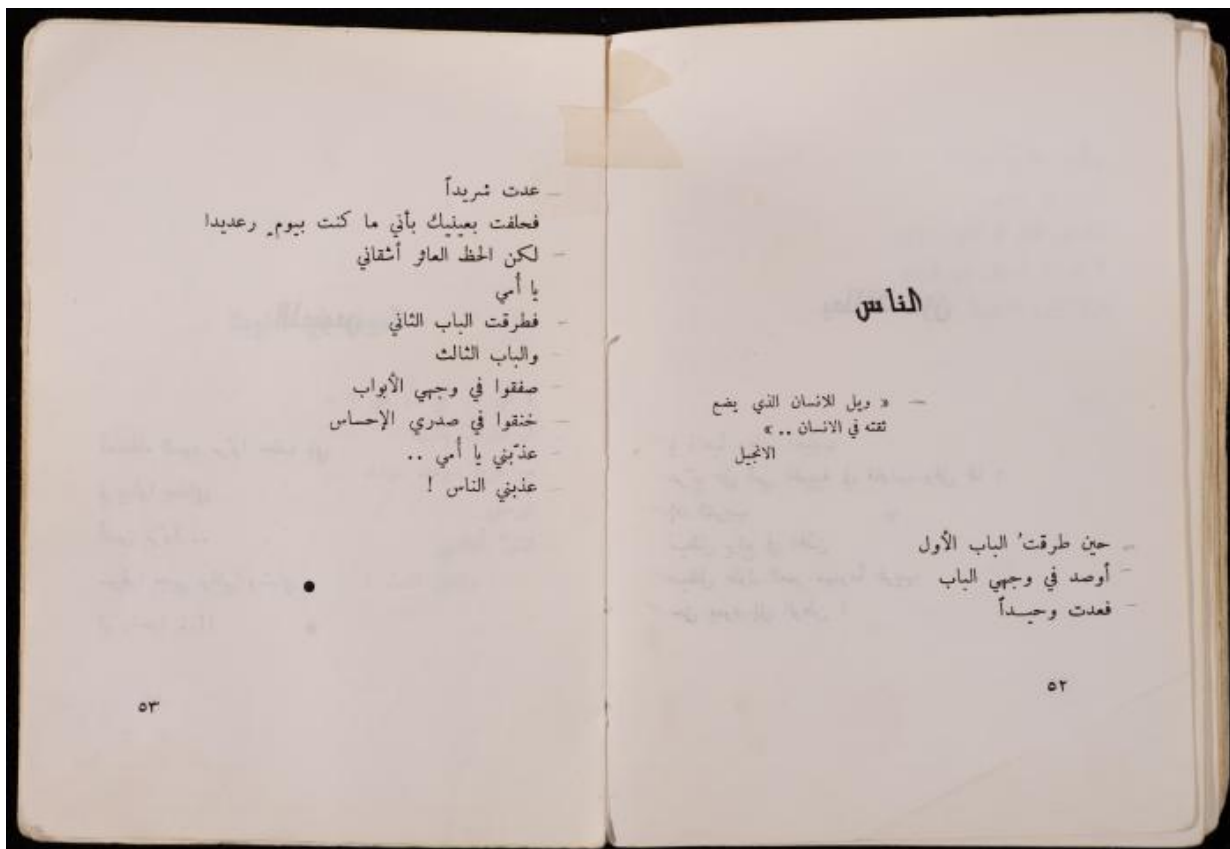 الناس
— « ويل للانسان الذي يضع
ثقته في الانسان .. »
الانجيل
– حين طرقتُ الباب الأول
– أوصد في وجهي الباب
– فعدت وحيــداً
٥٢
– عدت شريداً
فحلفت بعينيك بأني ما كنت بيومٍ رعديدا
– لكن الحظ العاثر أشقاني
يا أمي
– فطرقت الباب الثاني
– والباب الثالث
– صفقوا في وجهي الأبواب
– خنقوا في صدري الإحساس
– عذّبني يا أمي ..
– عذبني الناس !
٥٣